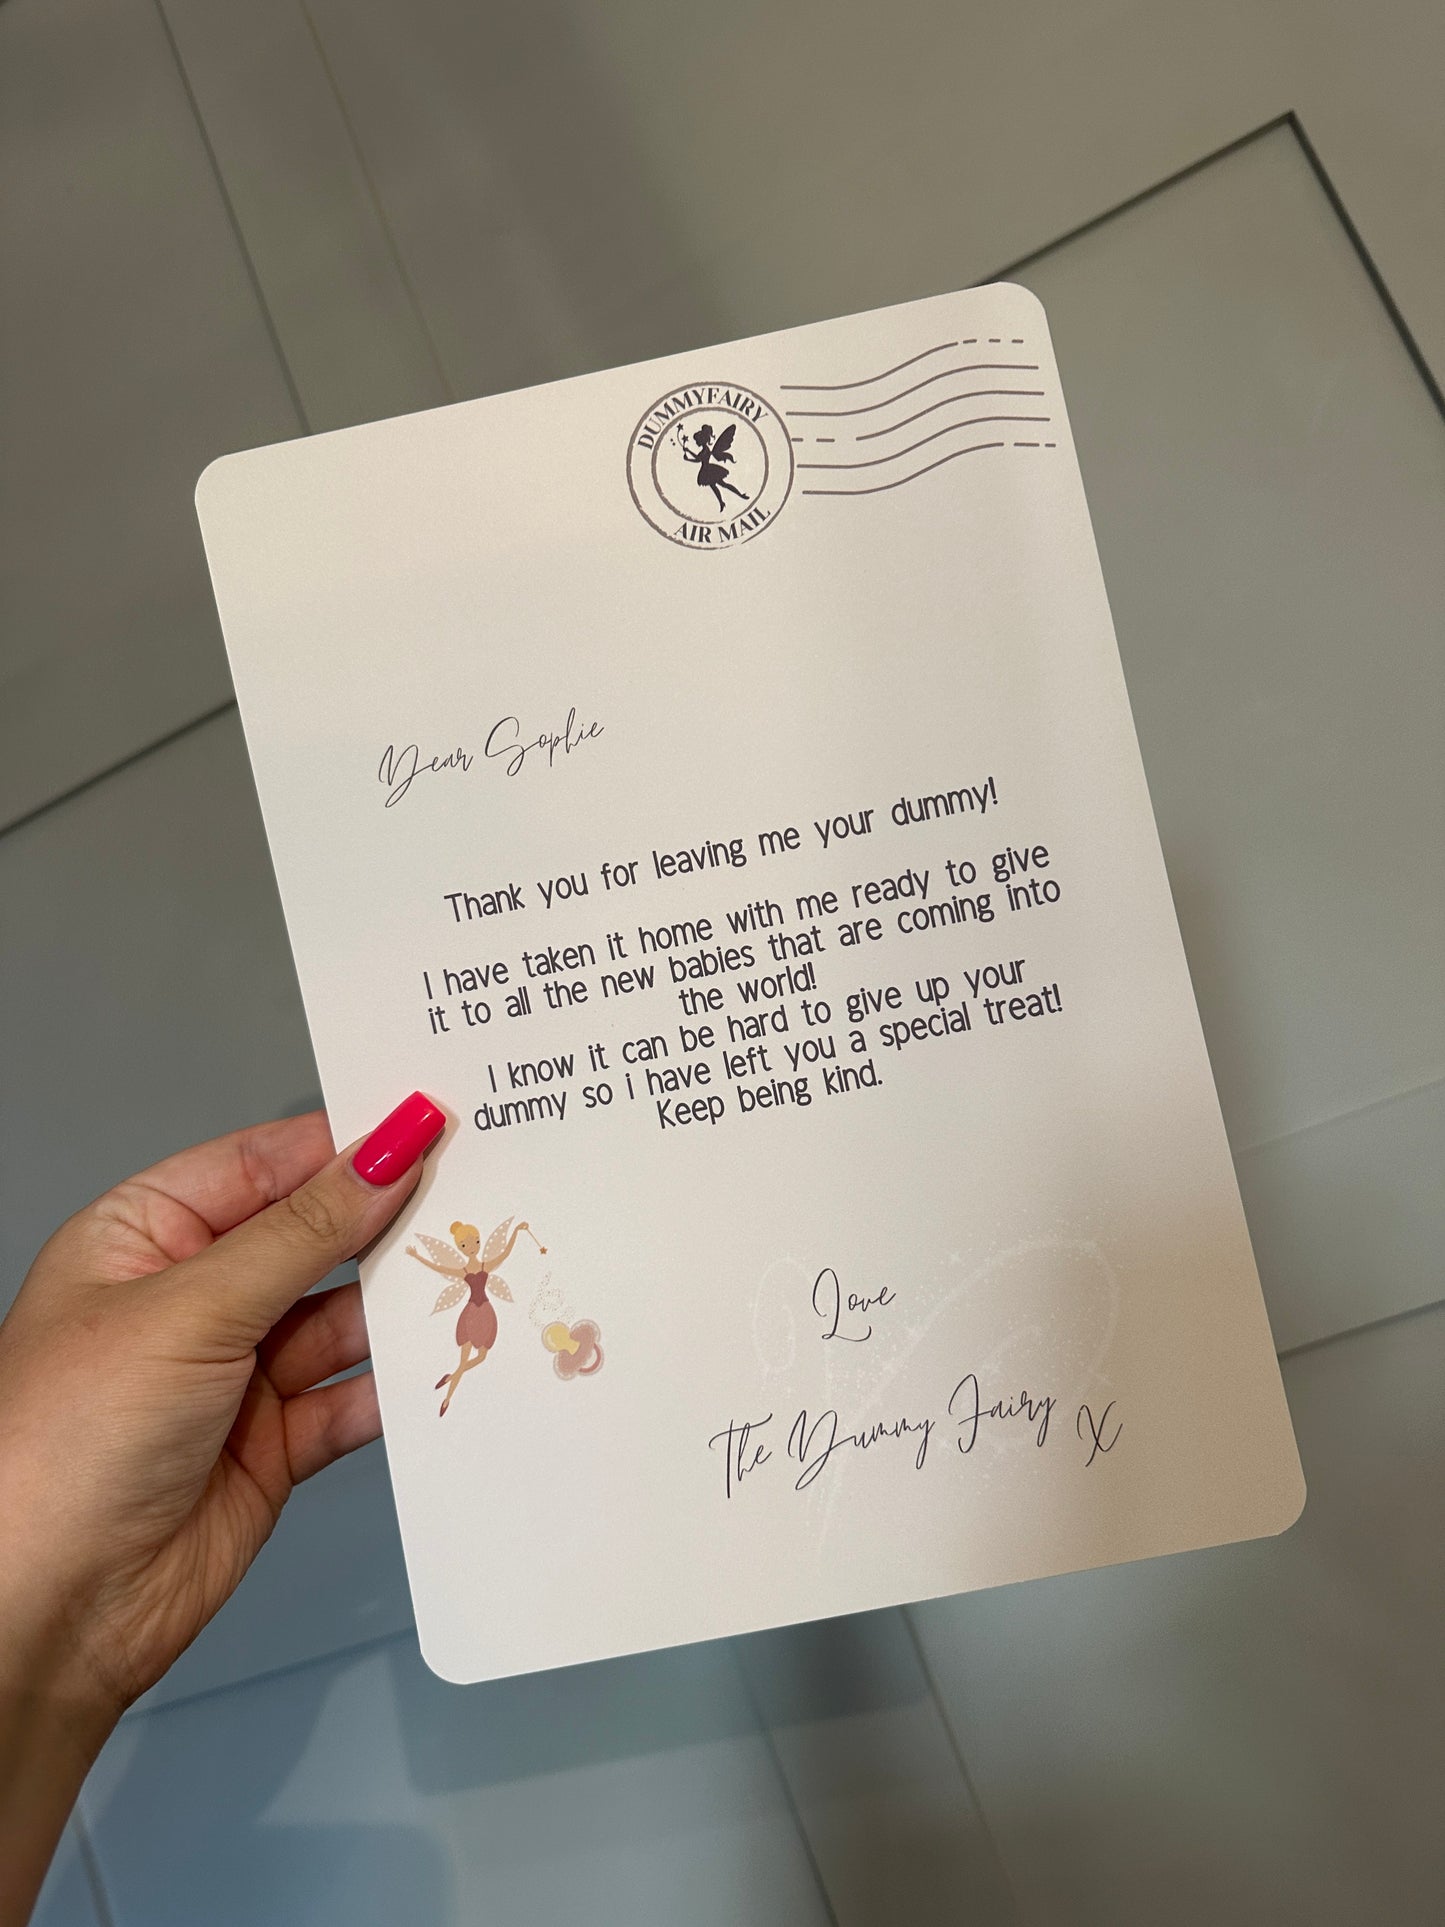 DUMMYFAIRY
AIR MAIL
Dear Sophie
Thank you for leaving me your dummy!
I have taken it home with me ready to give
it to all the new babies that are coming into
the world!
I know it can be hard to give up your
dummy so i have left you a special treat!
Keep being kind.
Love
The Dummy Fairy X